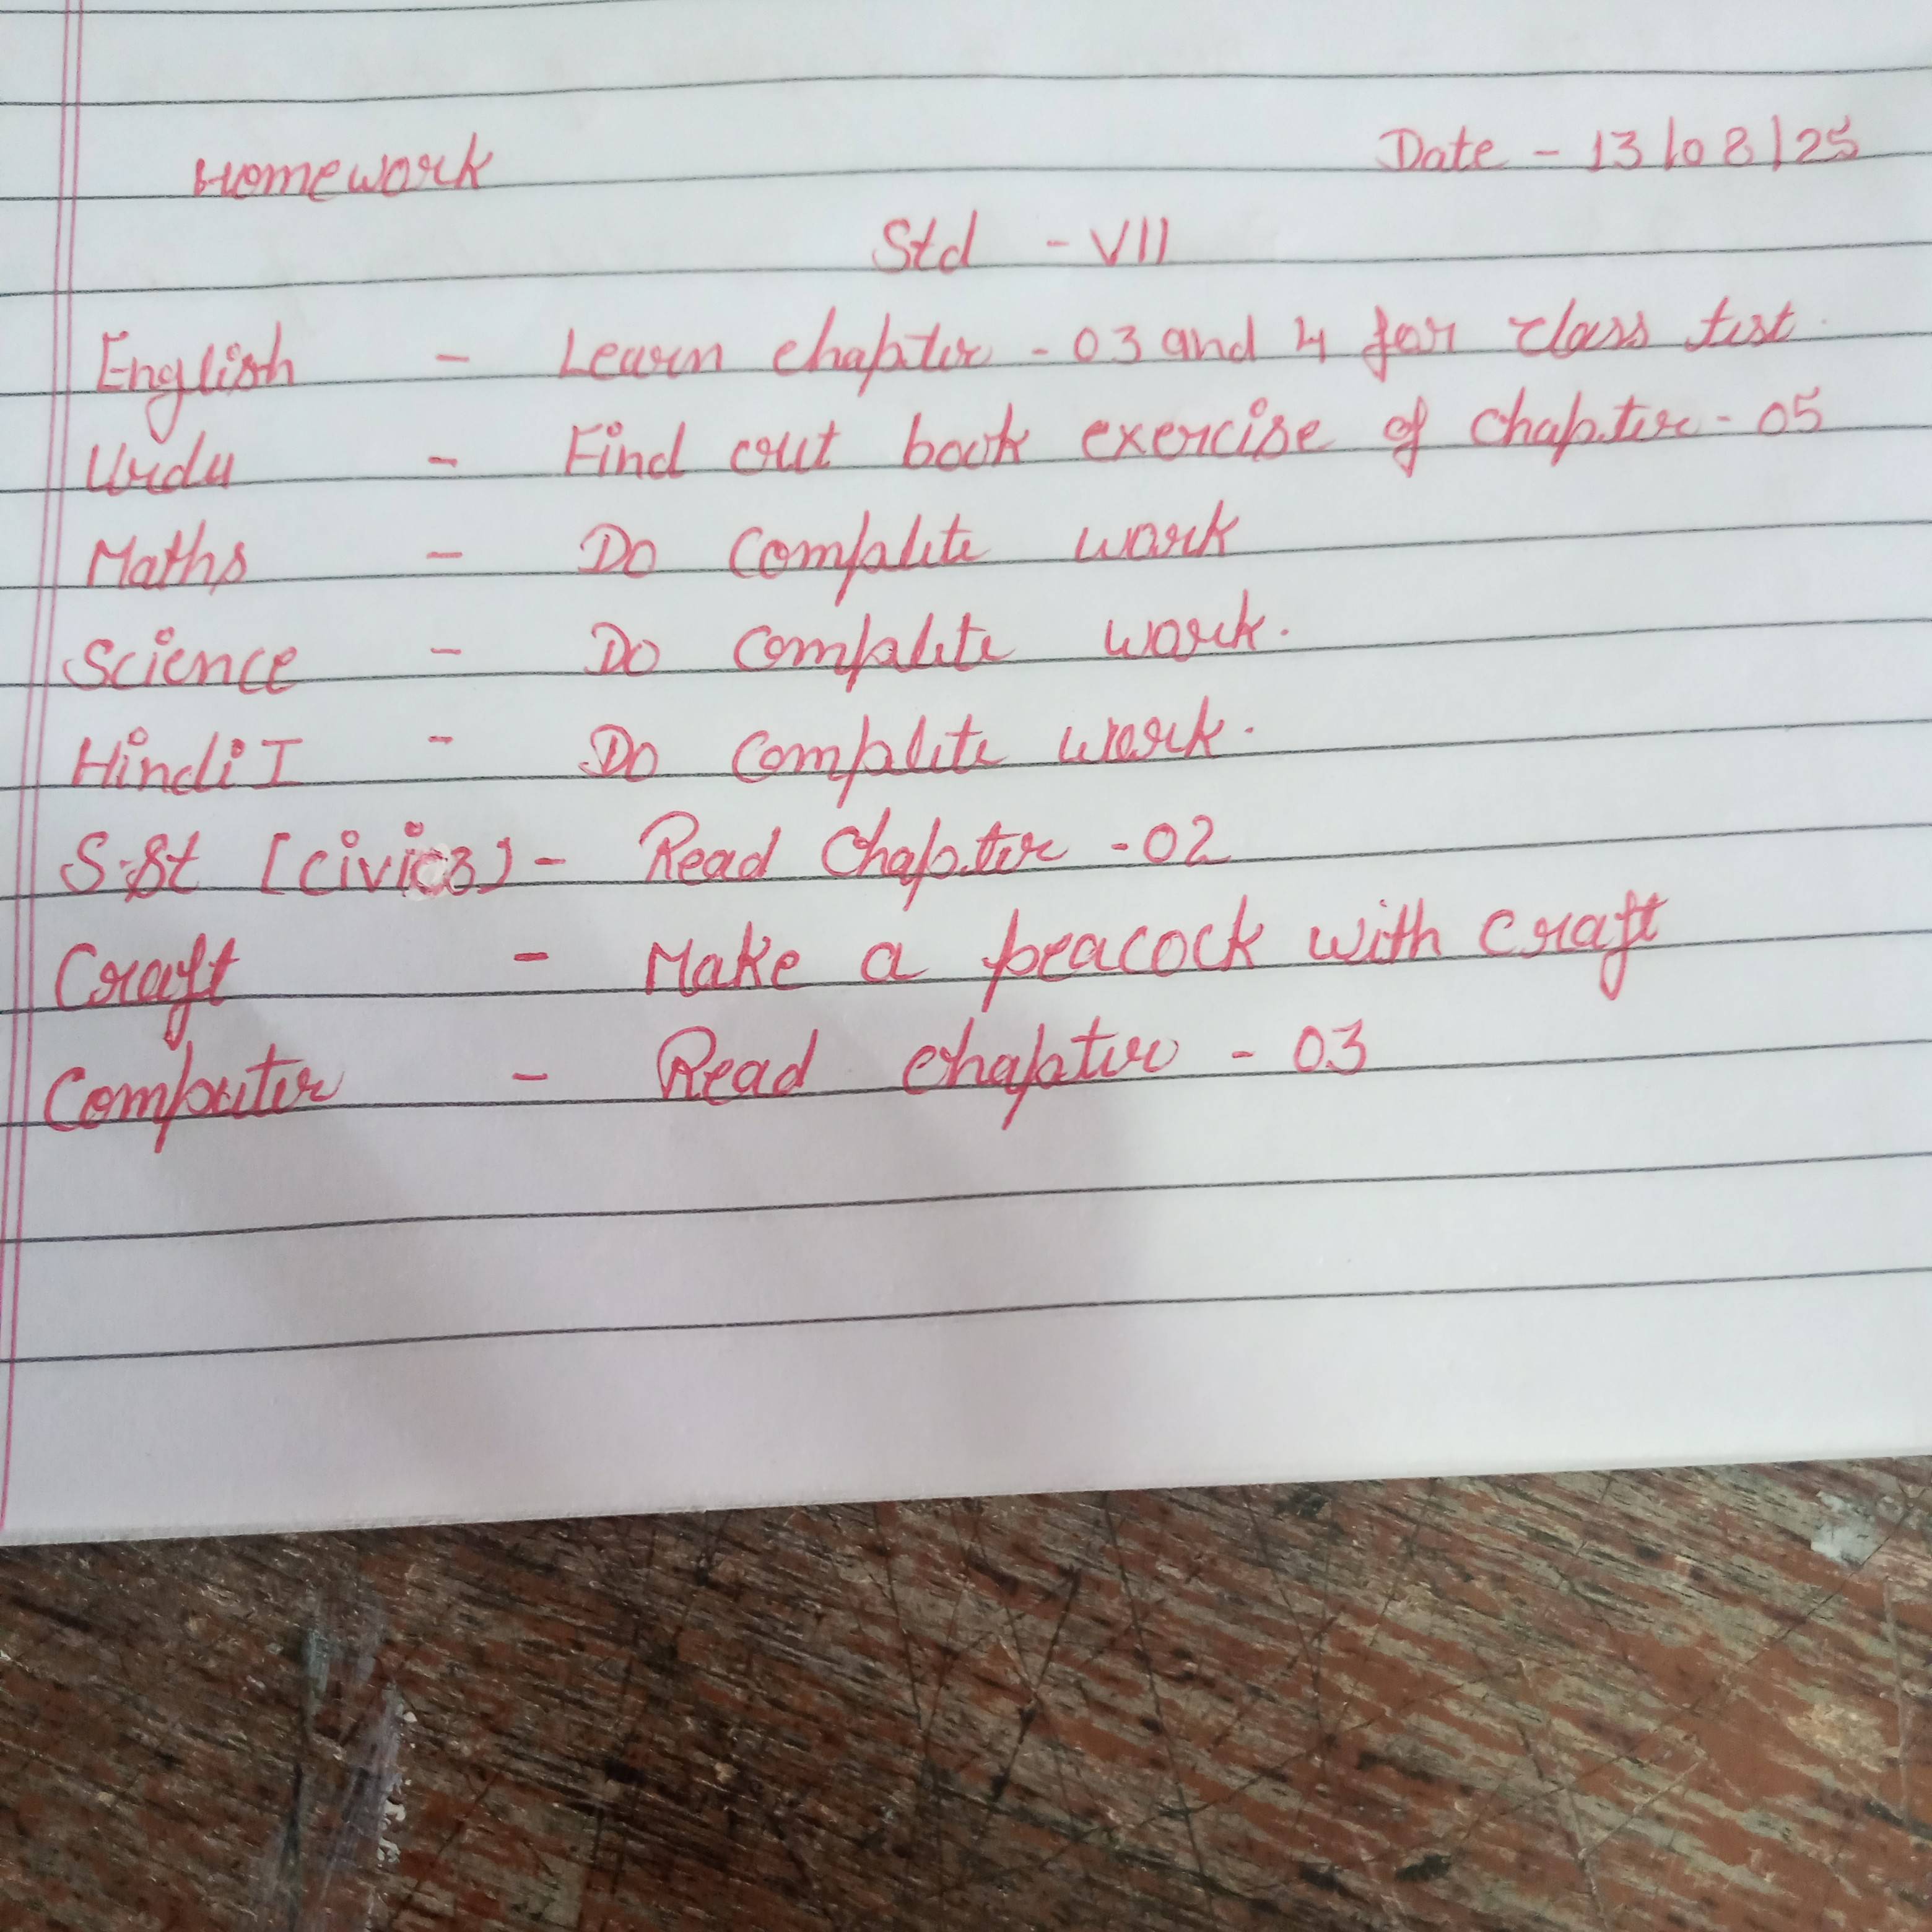 Homework Date - 13/08/25
Std - VII
English - Learn chapter - 03 and 4 for class test.
Urdu - Find out book exercise of chapter - 05
Maths - Do Complite work
Science - Do Complite work.
Hindi I - Do Complite work.
S.St [civics] - Read Chapter - 02
Craft - Make a peacock with craft
Computer - Read chapter - 03